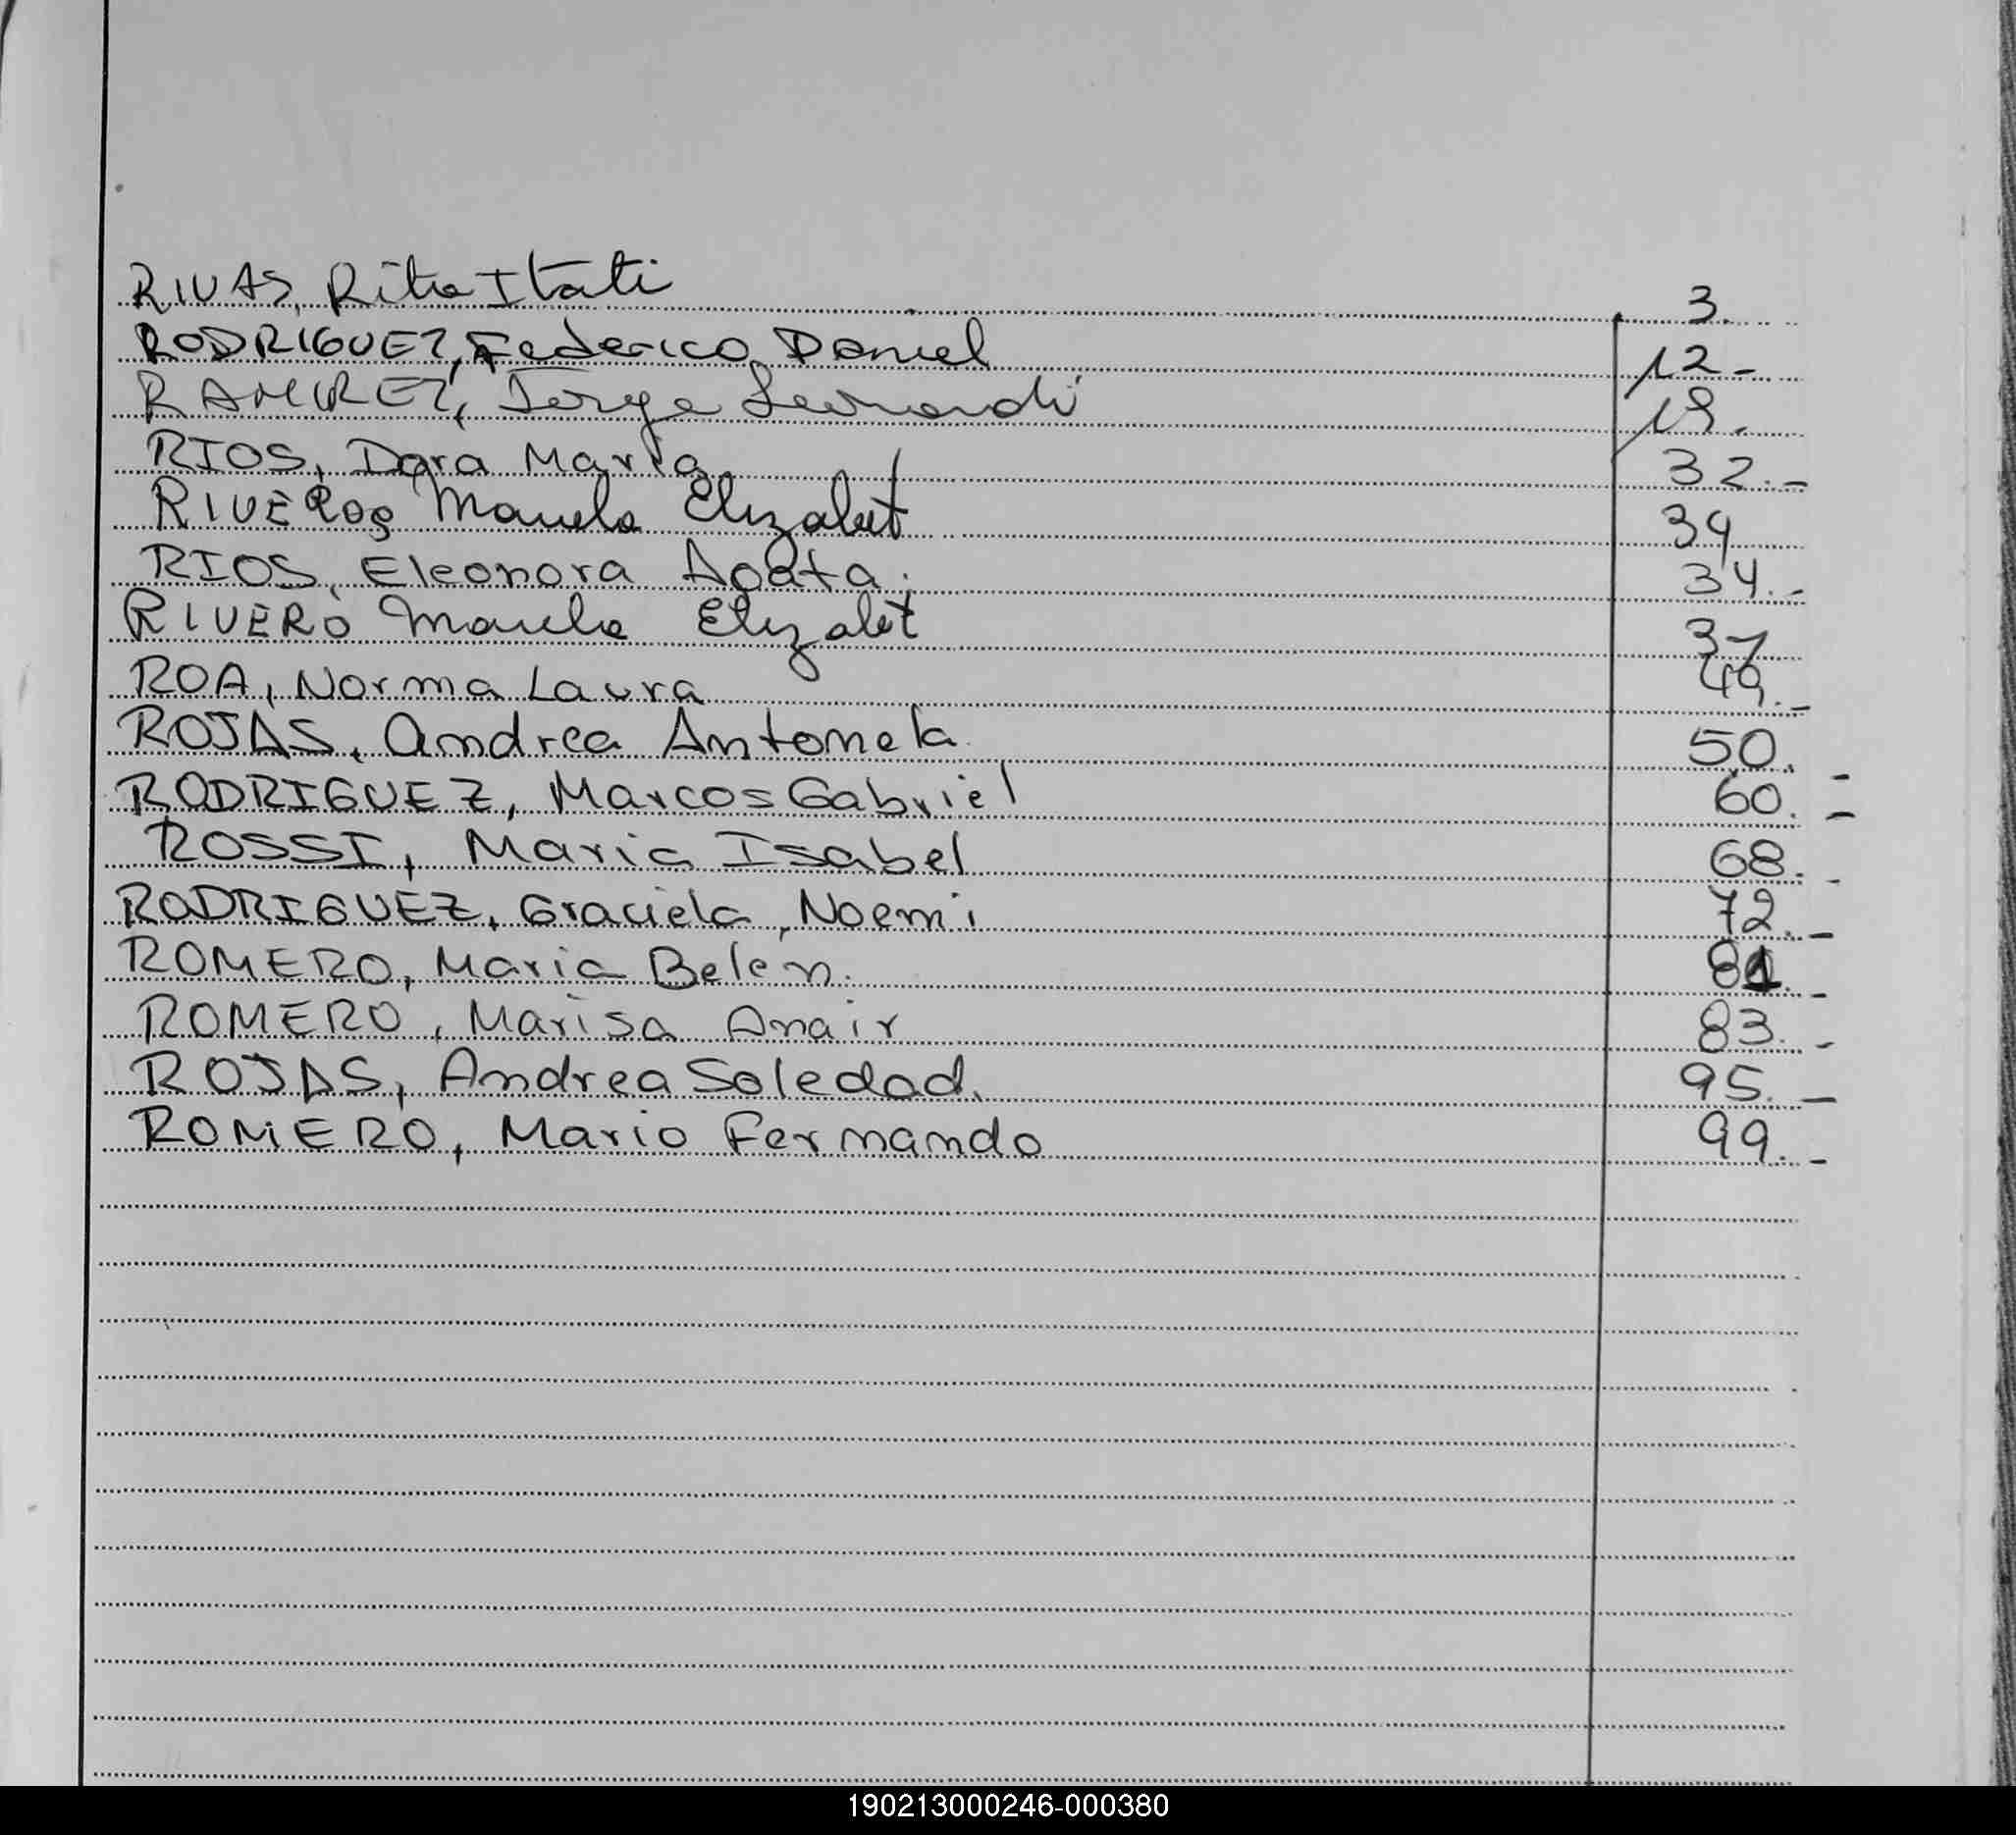 RIVAS, Rita Itati 3.
RODRIGUEZ, Federico Daniel 12-
RAMIREZ, Jorge 19.
RIOS, Dora Maria 32.-
RIVEROS Marcela Elizabet 34
RIOS, Eleonora Agata. 34.-
RIVERO Marcela Elizabet 37
ROA, Norma Laura 49.-
ROJAS, Andrea Antonela 50.-
RODRIGUEZ, Marcos Gabriel 60.-
ROSSI, Maria Isabel 68.-
RODRIGUEZ, Graciela, Noemi 72.-
ROMERO, Maria Belen. 81.-
ROMERO, Marisa Anair 83.-
ROJAS, Andrea Soledad. 95.-
ROMERO, Mario Fernando 99.-
190213000246-000380